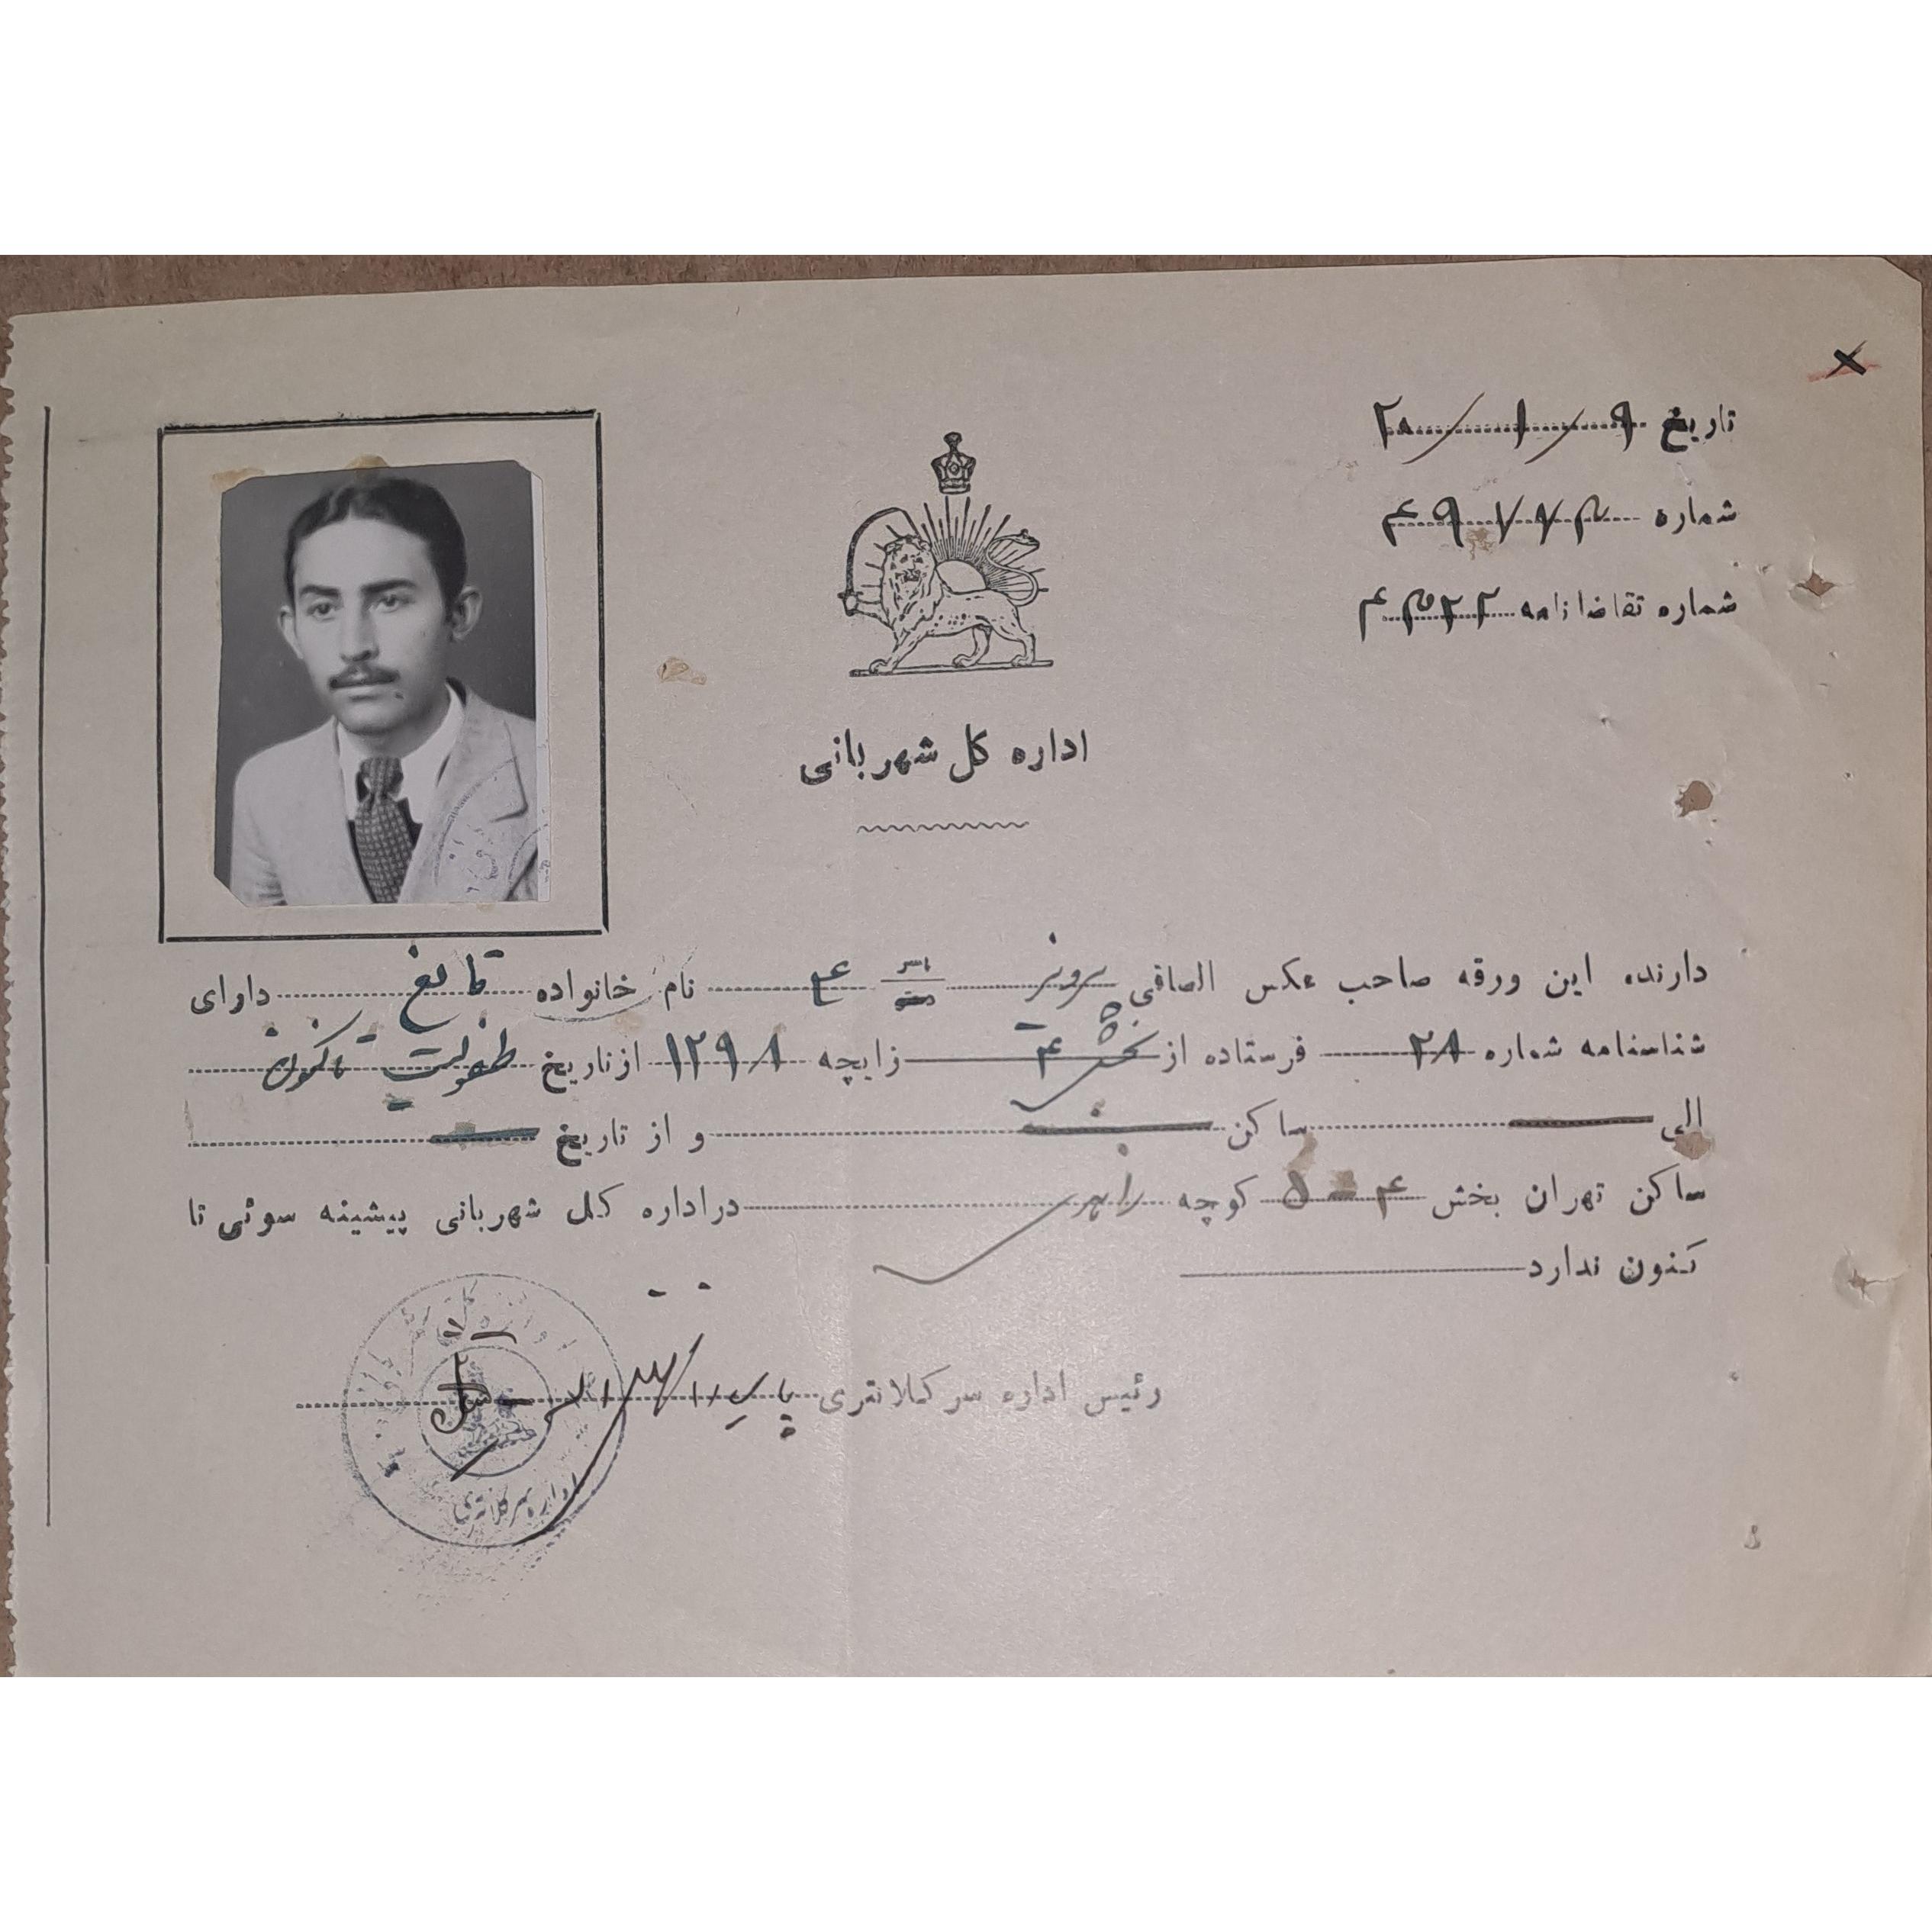 تاریخ ۹/۱/۲۰
شماره ۴۹۷۷۳
شماره تقاضانامه
اداره کل شهربانی
دارنده این ورقه صاحب عکس الصاقی پرویز نام خانواده دارای
شناسنامه شماره ۲۸ فرستاده از بخش ۴ زایچه ۱۲۹۸ ازتاریخ طفولیت تاکنون
الی ساکن و از تاریخ
ساکن تهران بخش ۴ - ۵ کوچه دراداره کل شهربانی پیشینه سوئی تا
کنون ندارد
رئیس اداره سر کلانتری
اداره سرکلانتری